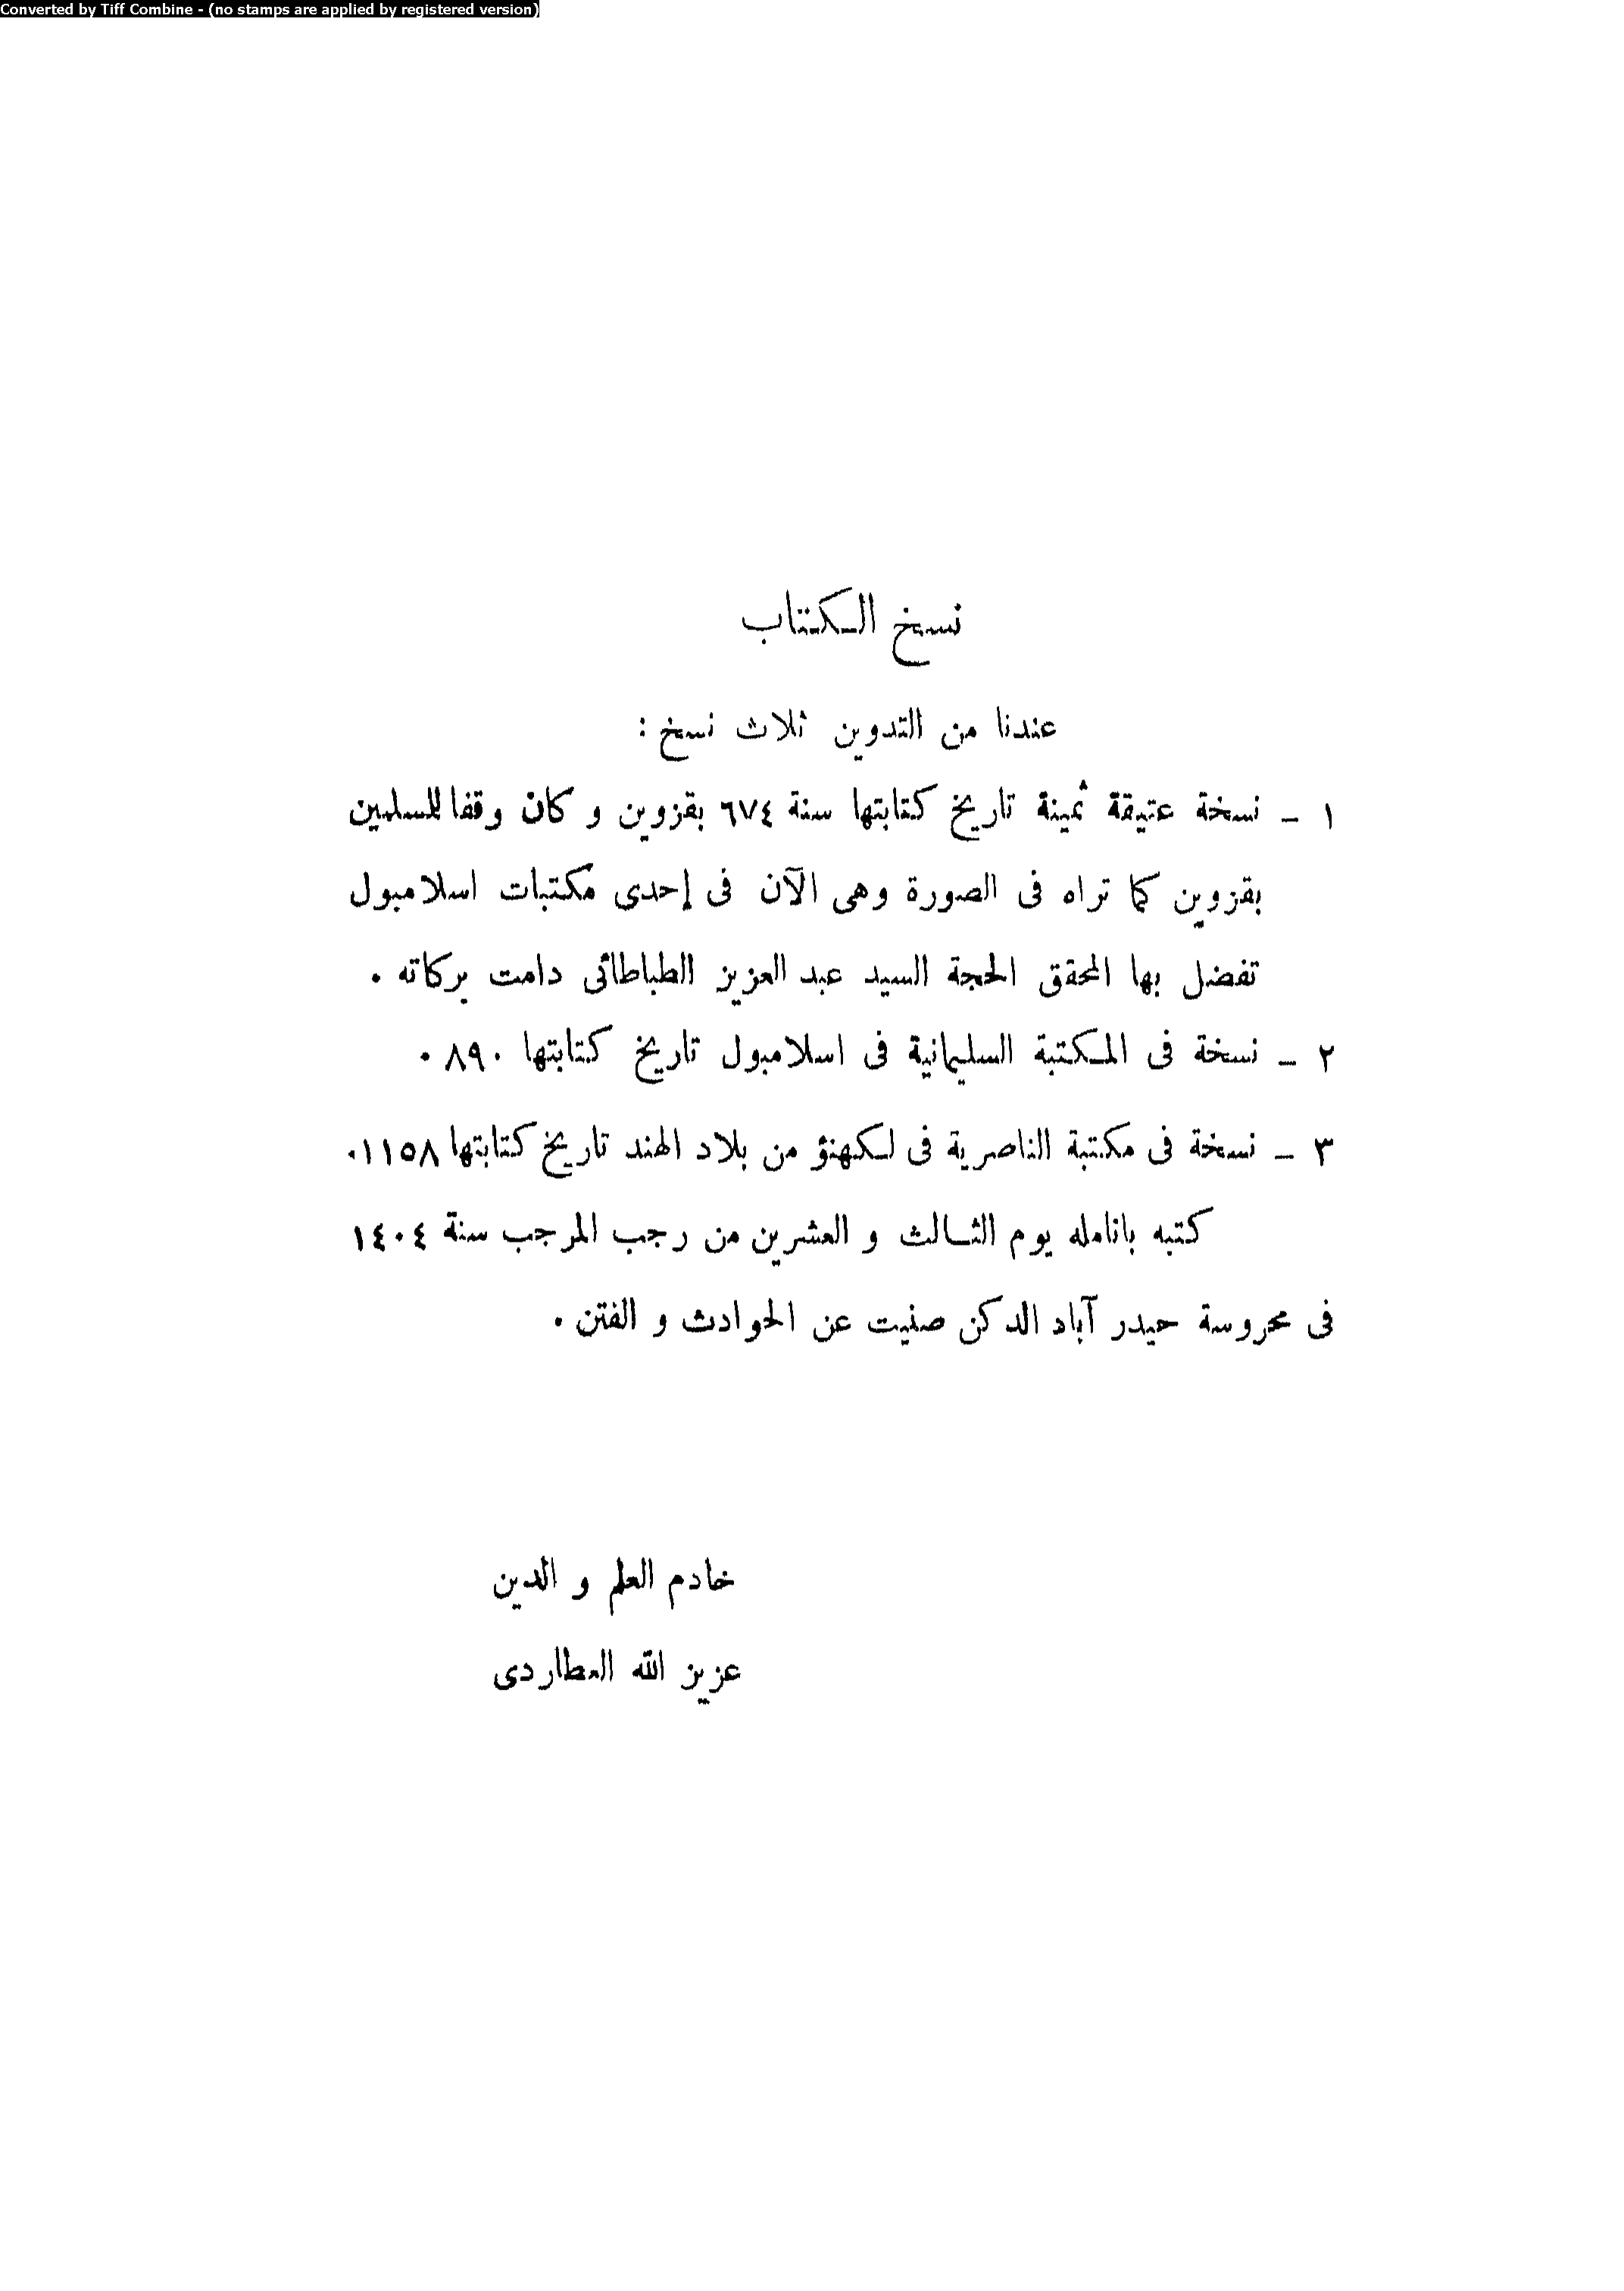 Converted by Tiff Combine - (no stamps are applied by registered version)
نسخ الكتاب
عندنا من التدوين ثلاث نسخ :
١ - نسخة عتيقة ثمينة تاريخ كتابتها سنة ٦٧٤ بقزوين و كان وقفا للمسلمين
بقزوين كما تراه فى الصورة وهى الآن فى إحدى مكتبات اسلامبول
تفضل بها المحقق الحجة السيد عبد العزيز الطباطائى دامت بركاته .
٢ - نسخة فى المكتبة السليمانية فى اسلامبول تاريخ كتابتها ٨٩٠ .
٣ - نسخة فى مكتبة الناصرية فى لكهنؤ من بلاد الهند تاريخ كتابتها ١١٥٨.
كتبه بانامله يوم الثالث و العشرين من رجب المرجب سنة ١٤٠٤
فى محروسة حيدر آباد الدكن صنيت عن الحوادث و الفتن .
خادم العلم و الدين
عزيز الله العطاردى